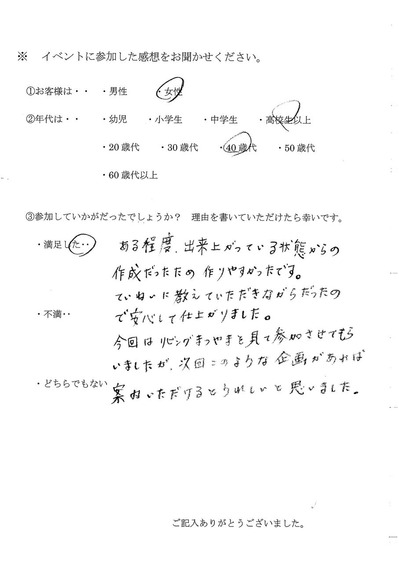 ※ イベントに参加した感想をお聞かせください。
①お客様は・・ ・男性 ・女性
②年代は・・ ・幼児 ・小学生 ・中学生 ・高校生以上
・20歳代 ・30歳代 ・40歳代 ・50歳代
・60歳代以上
③参加していかがだったでしょうか? 理由を書いていただけたら幸いです。
・満足した・・
ある程度、出来上がっている状態からの
作成だったため作りやすかったです。
ていねいに教えていただきながらだったの
・不満・・
で安心して仕上がりました。
今回はリビングまつやまを見て参加させてもら
いましたが、次回このような企画があれば
・どちらでもない
案内いただけるとうれしいと思いました。
ご記入ありがとうございました。